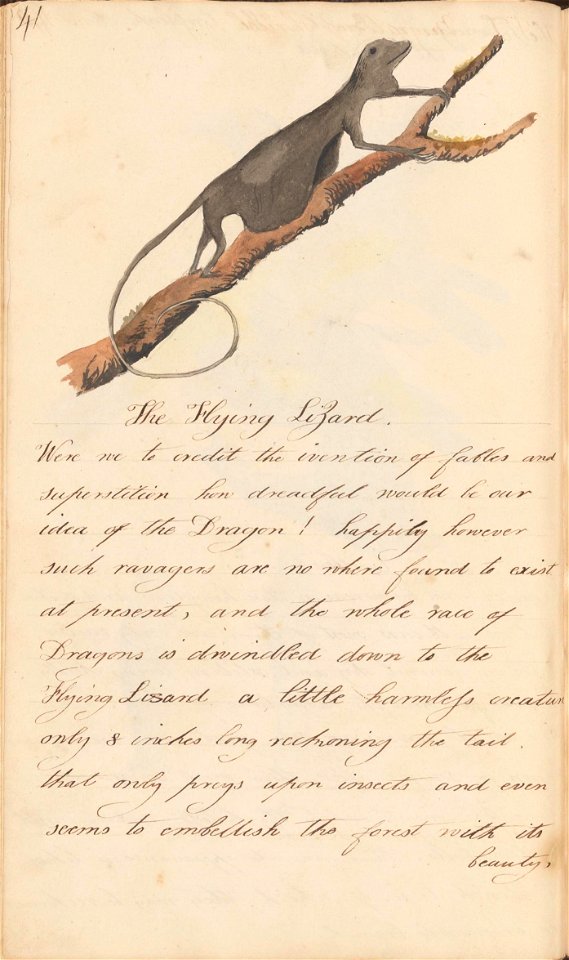 41
The Flying Lizard.
Were we to credit the ivention of fables and
superstition how dreadful would be our
idea of the Dragon! happily however
such ravagers are no where found to exist
at present, and the whole race of
Dragons is dwindled down to the
Flying Lizard a little harmless creatur
only 8 inches long reckoning the tail.
that only preys upon insects and even
seems to embellish the forest with its
beauty,